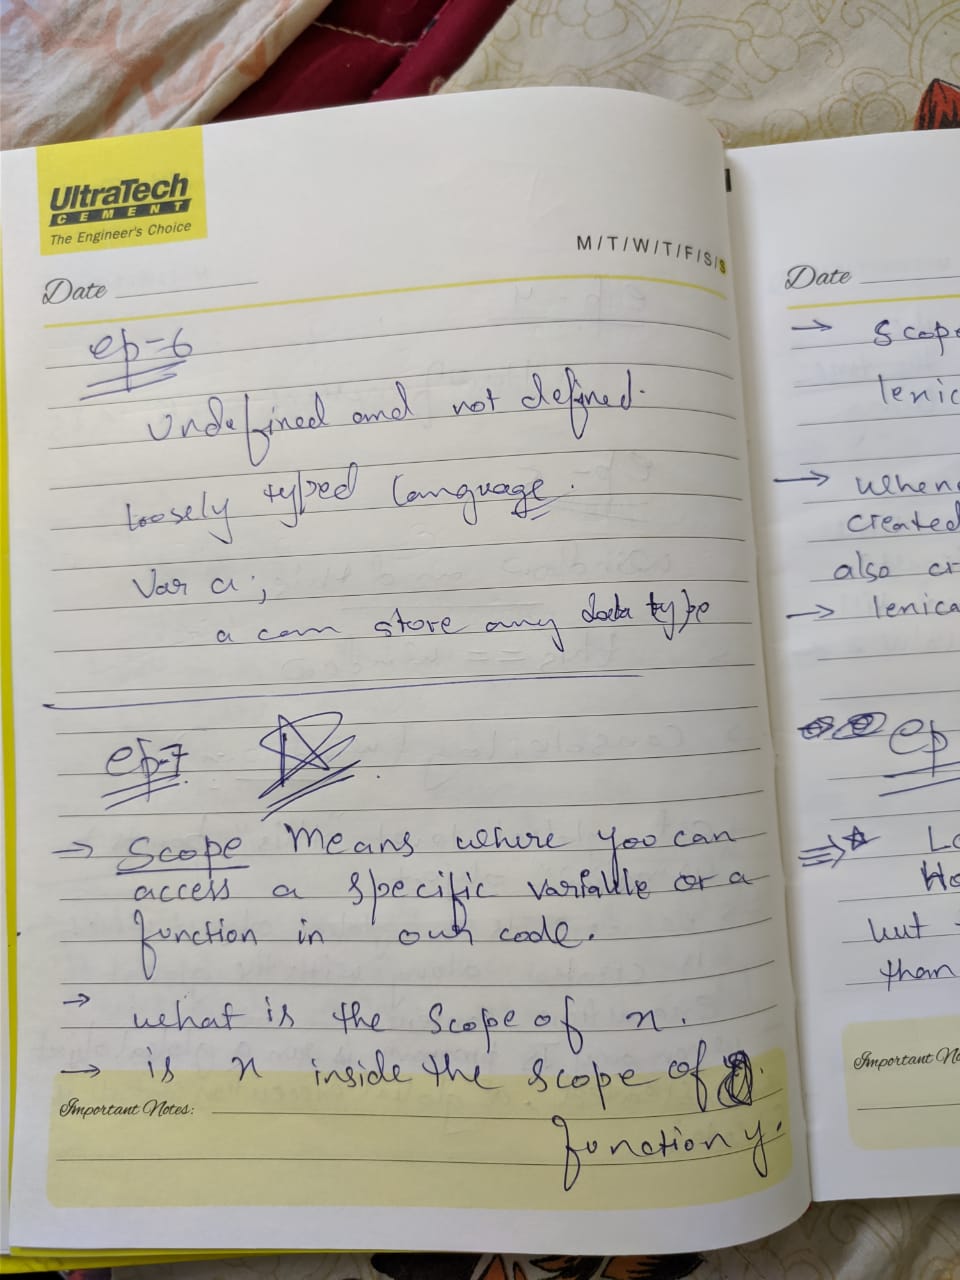 UltraTech
CEMENT
The Engineer's Choice
M/T/W/T/F/S/S
Date
ep-6
Undefined and not defined.
loosely typed language.
Var a;
a can store any data type
ep-7
→ Scope Means where you can
access a specific variable or a
function in our code.
→ what is the Scope of x.
→ is x inside the scope of
function y.
Important Notes:
Date
→ Scope
lexic
→ when
created
also cr
→ lexica
ep
Lo
Ho
but
than
Important No